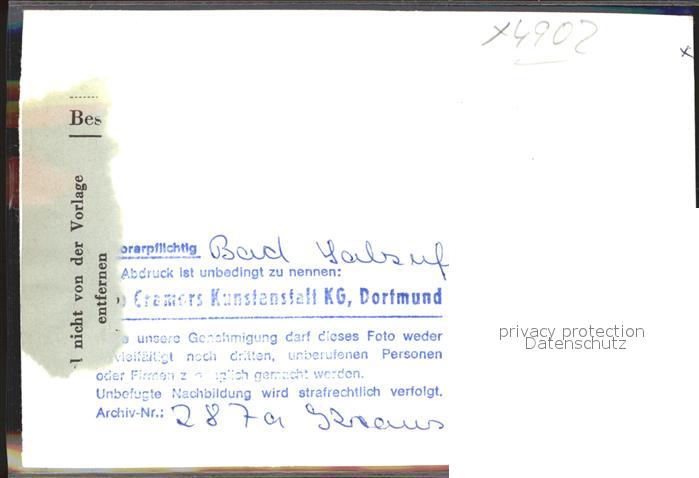 x4902
x
Bes
nicht von der Vorlage
entfernen
orarpflichtig Bad Salzuf
Abdruck ist unbedingt zu nennen:
Cramers Kunstanstalt KG, Dortmund
e unsere Genehmigung darf dieses Foto weder
vielfältigt noch dritten, unberufenen Personen
oder Firmen z nglich gemacht werden.
Unbefugte Nachbildung wird strafrechtlich verfolgt.
Archiv-Nr.: 287a
privacy protection
Datenschutz